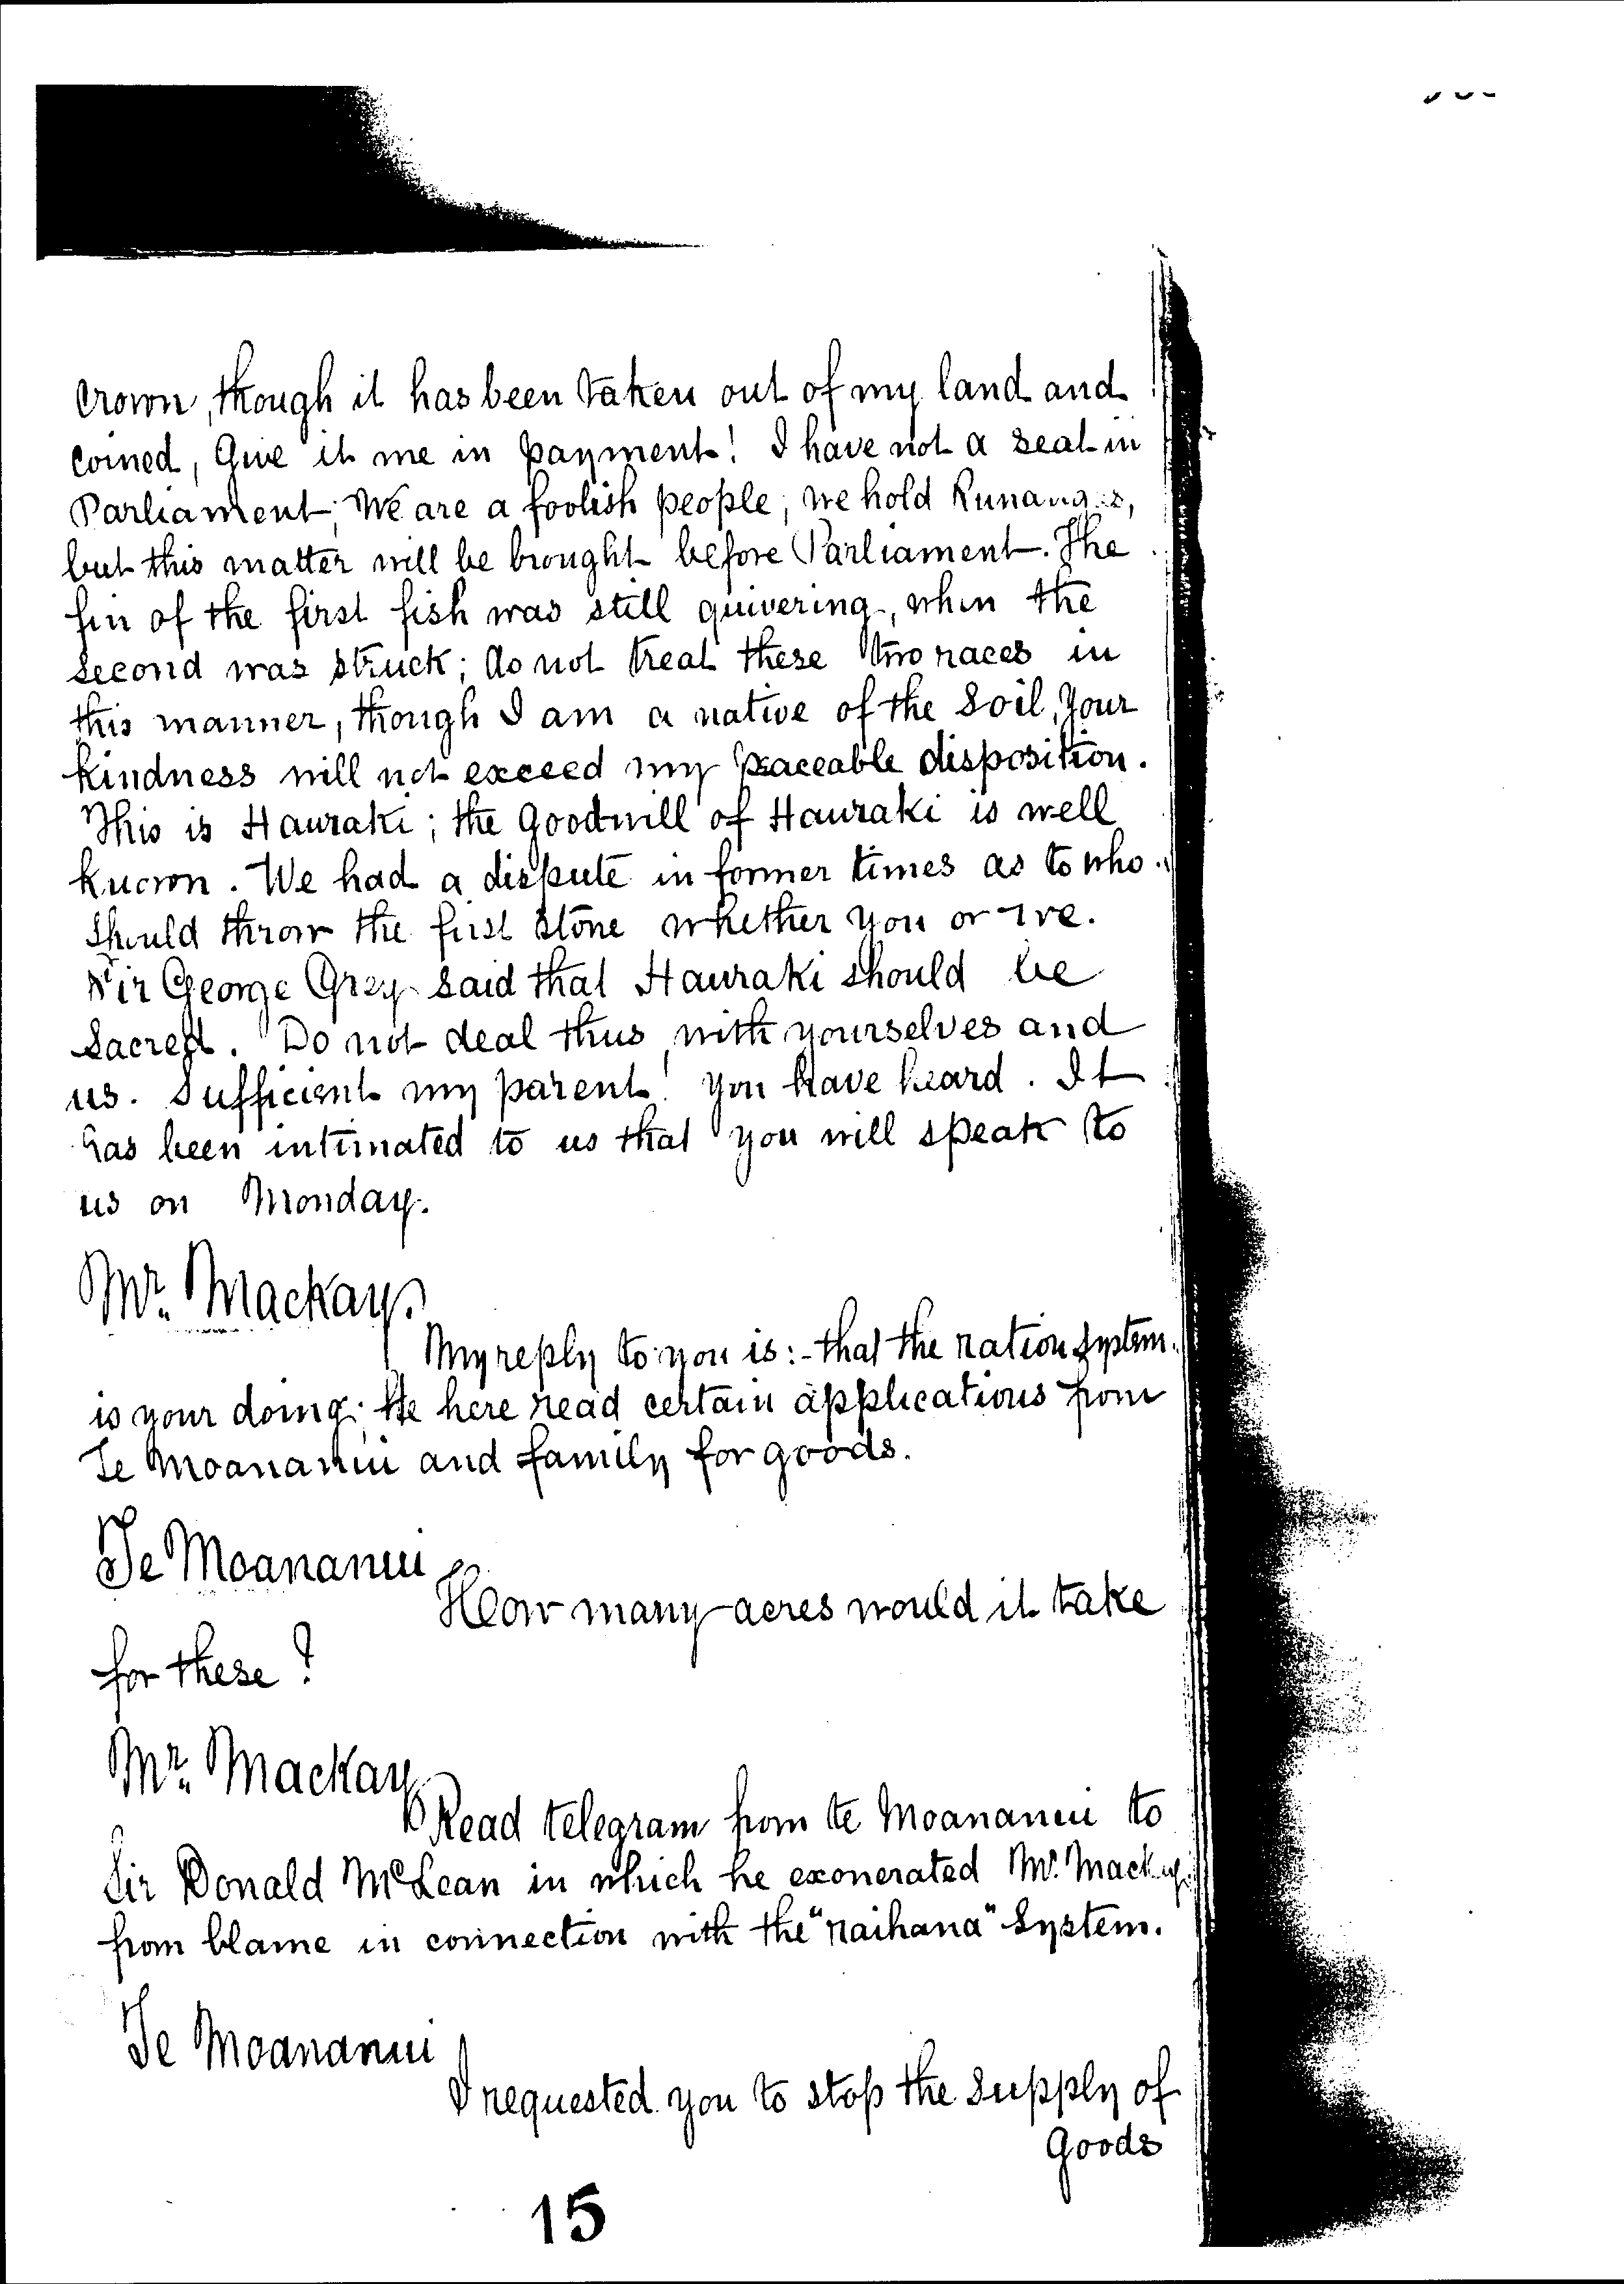 crown, though it has been taken out of my land and
coined, Give it me in payment! I have not a seat in
Parliament; We are a foolish people; we hold Runangas,
but this matter will be brought before Parliament. The
fin of the first fish was still quivering, when the
second was struck; do not treat these two races in
this manner, though I am a native of the soil, Your
kindness will not exceed my peaceable disposition.
This is Hauraki; the goodwill of Hauraki is well
known. We had a dispute in former times as to who
should throw the first stone whether you or we.
Sir George Grey said that Hauraki should be
Sacred. Do not deal thus with yourselves and
us. Sufficient my parent! you have heard. It
has been intimated to us that you will speak to
us on Monday.
Mr. Mackay.
My reply to you is:- that the ration system
is your doing; He here read certain applications from
Te Moananui and family for goods.
Te Moananui
How many acres would it take
for these?
Mr. Mackay
Read telegram from te Moananui to
Sir Donald McLean in which he exonerated Mr. Mackay
from blame in connection with the "raihana" System.
Te Moananui
I requested you to stop the supply of
Goods
15